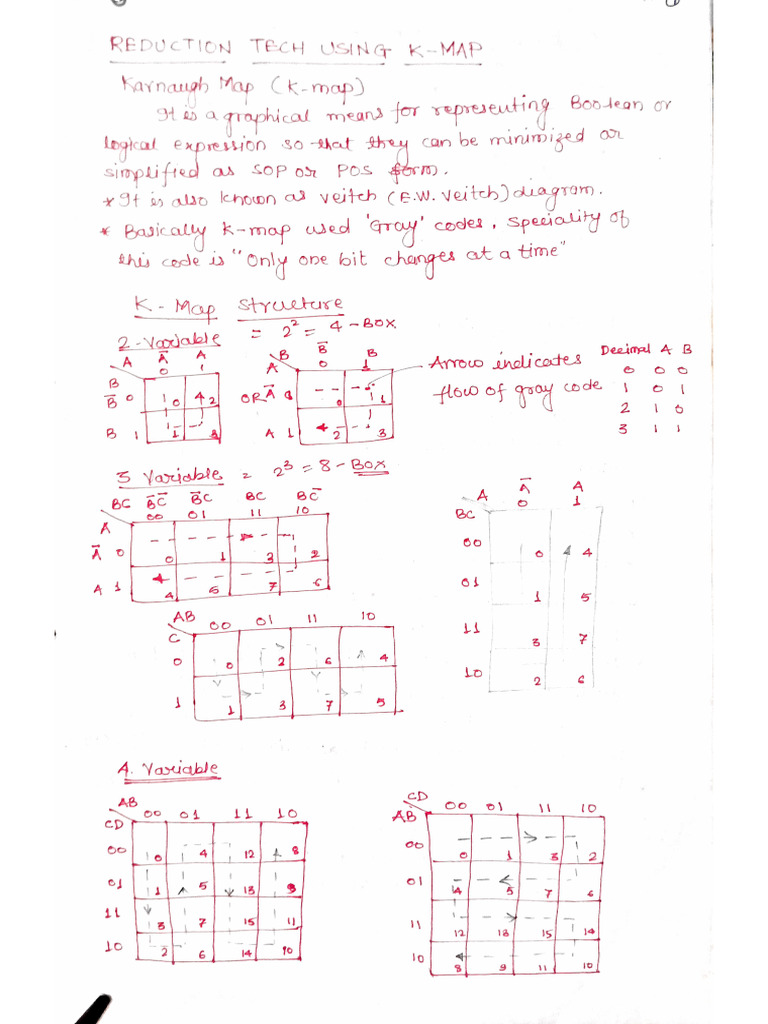 REDUCTION TECH USING K-MAP
Karnaugh Map (K-map)
It is a graphical means for representing Boolean or
logical expression so that they can be minimized or
simplified as SOP or POS form.
* It is also known as veitch (E.W. veitch) diagram.
* Basically K-map used 'Gray' codes, Speciality of
this code is "Only one bit changes at a time"
K-Map structure
2-Variable = 2² = 4-Box
A A̅ A
0 1
B
B̅ 0 0 2
B 1 1 3
OR
B B̅ B
0 1
A
A̅ 0 0 1
A 1 2 3
Arrow indicates
flow of gray code
Decimal A B
0 0 0
1 0 1
2 1 0
3 1 1
3 Variable = 2³ = 8-Box
BC B̅C̅ B̅C BC BC̅
00 01 11 10
A
A̅ 0 0 1 3 2
A 1 4 5 7 6
A A̅ A
0 1
BC
00 0 4
01 1 5
11 3 7
10 2 6
AB 00 01 11 10
C
0 0 2 6 4
1 1 3 7 5
4. Variable
AB 00 01 11 10
CD
00 0 4 12 8
01 1 5 13 9
11 3 7 15 11
10 2 6 14 10
CD 00 01 11 10
AB
00 0 1 3 2
01 4 5 7 6
11 12 13 15 14
10 8 9 11 10